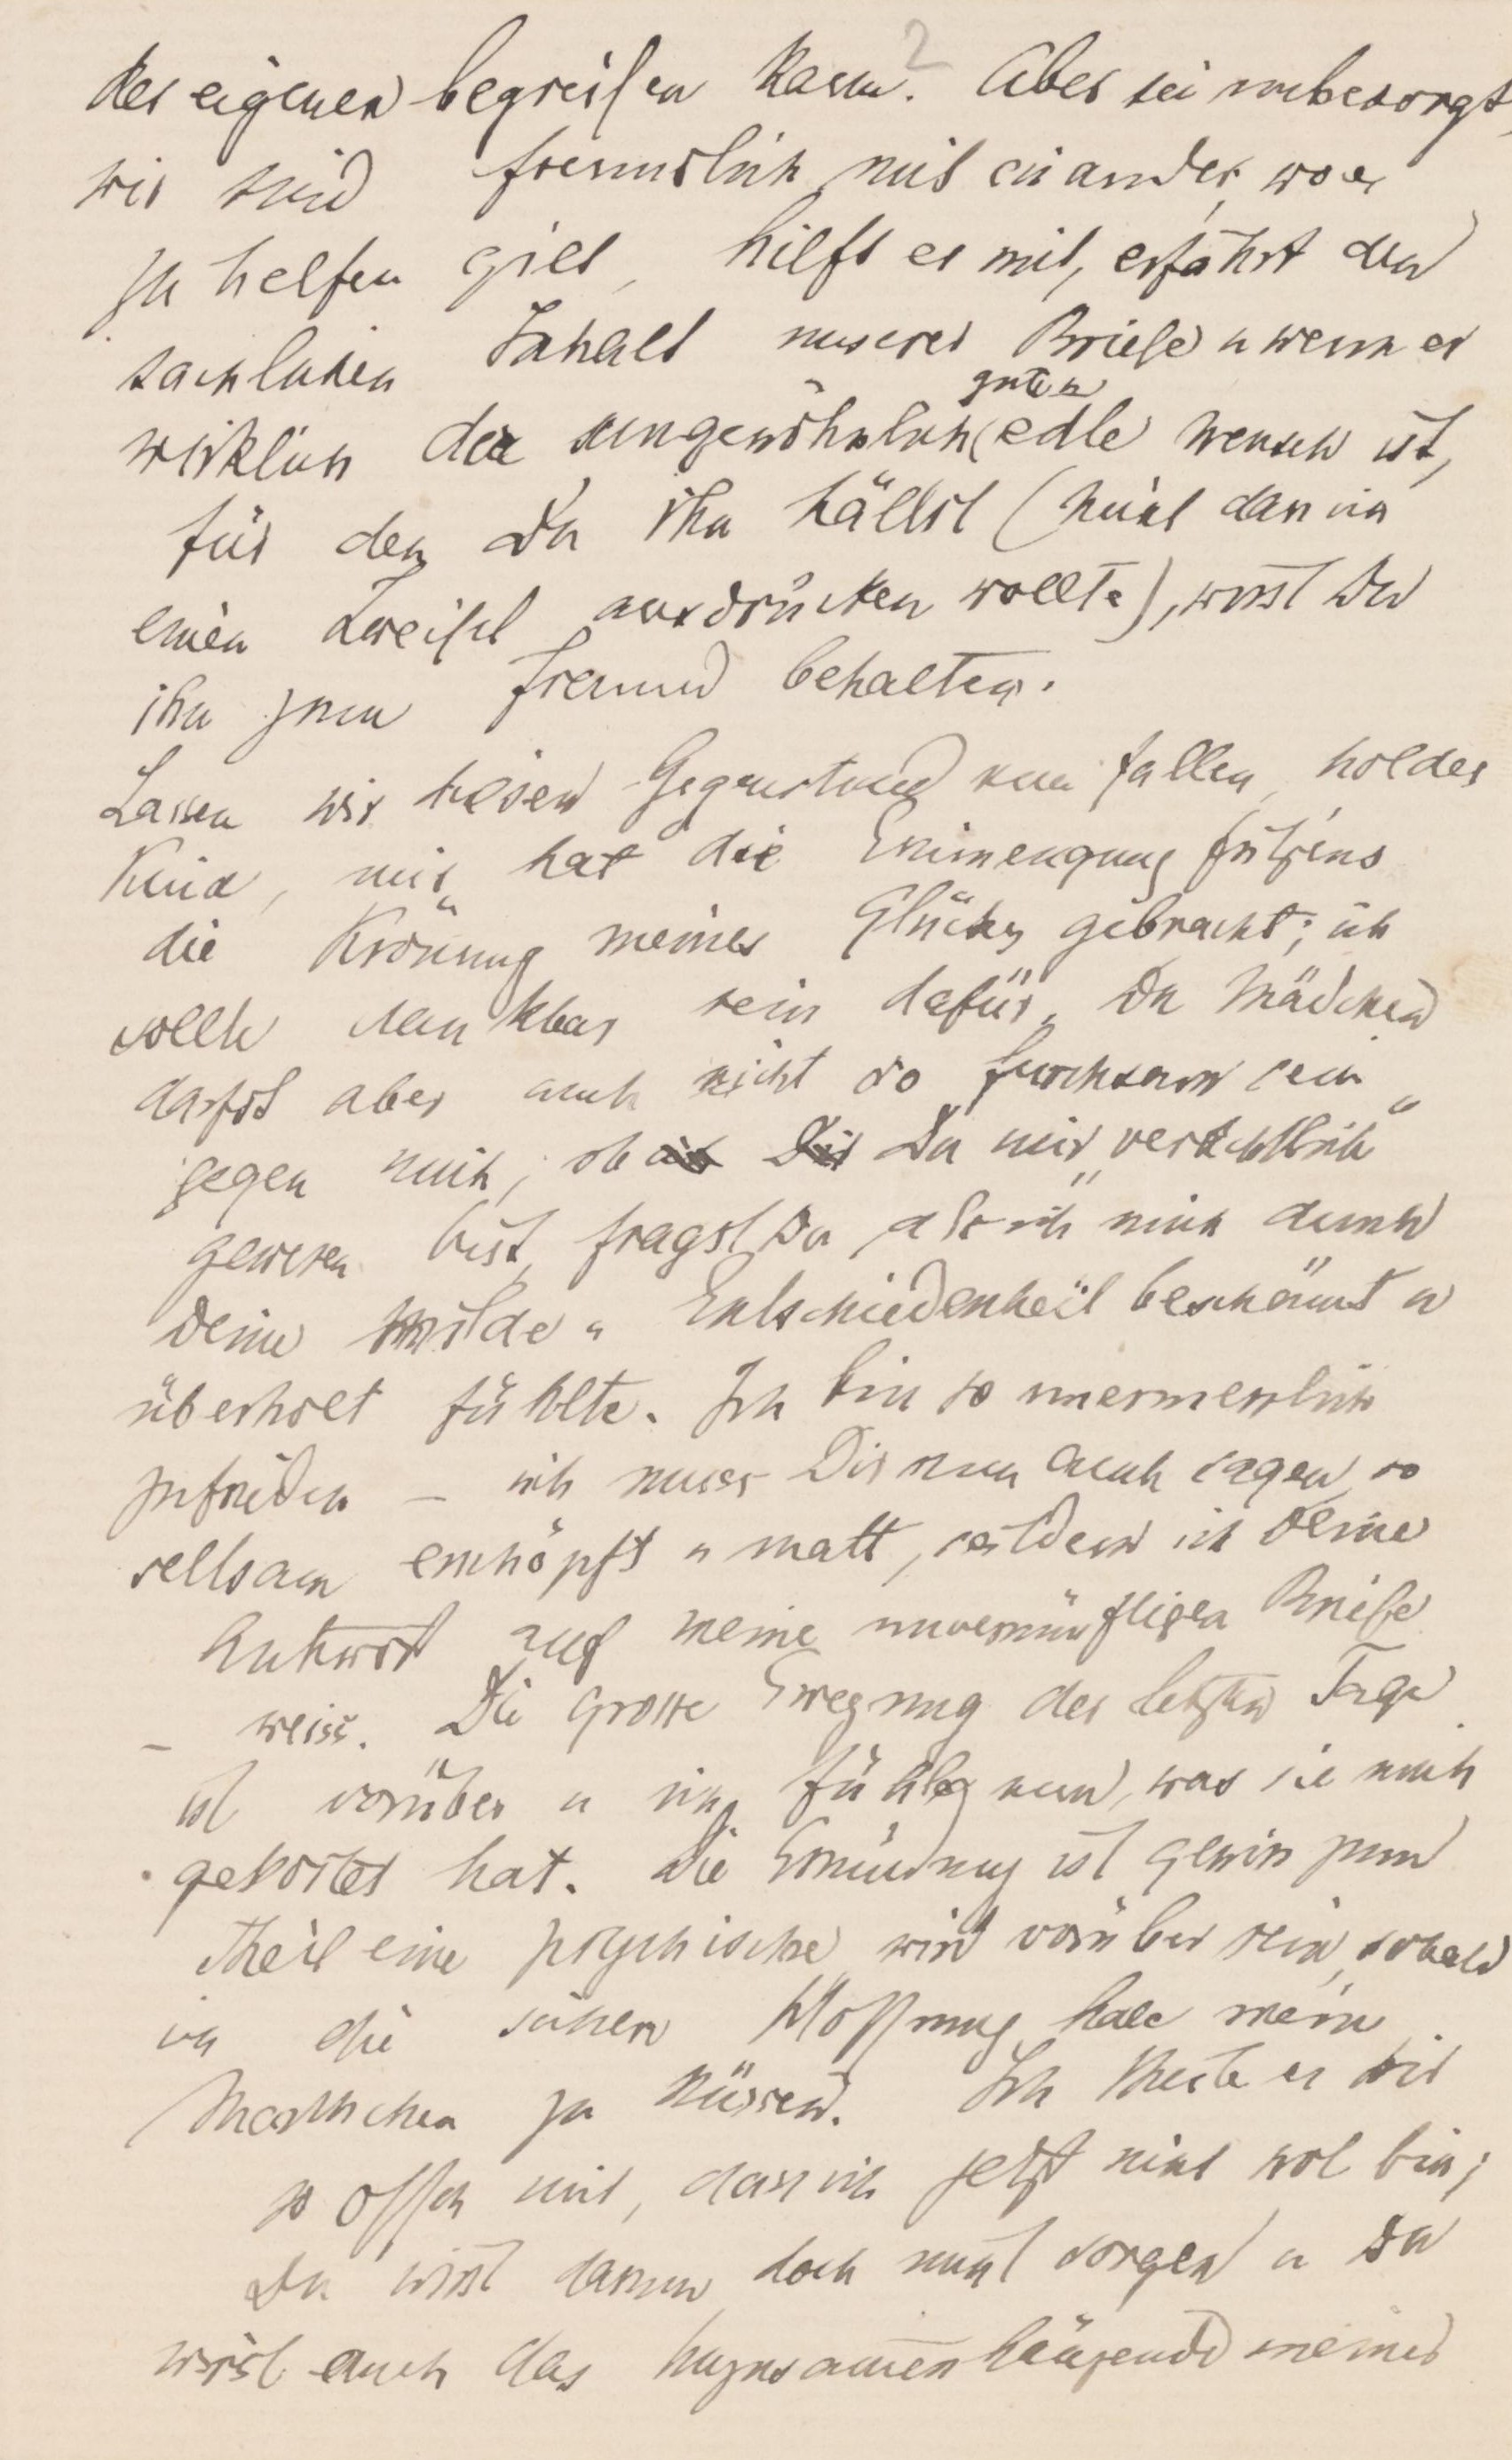 der eigenen begreifen kann? Aber sei unbesorgt,
wir sind freundlich mit einander, wo es
zu helfen gilt, hilft er mit, erfährt den
sachlichen Inhalt unserer Briefe u wenn er
wirklich der ungewöhnlich (guten edle Mensch ist,
für den Du ihn hältst (nicht dass ich
einen Zweifel ausdrücken wollte), wirst Du
ihn zum Freund behalten.
Lassen wir diesen Gegenstand nun fallen, holdes
Kind, mir hat die Einmengung Fritzens
die „Krönung meines Glücks“ gebracht; ich
sollte dankbar sein dafür. Du Mädchen
darfst aber auch nicht so furchtsam sein
gegen mich; ob Du mir „verächtlich“
gewesen bist, fragst Du, als ich mich durch
Deine Milde u Entschiedenheit beschämt u
überholt fühlte. Ich bin so unermesslich
zufrieden – ich muss Dir nun auch sagen, so
seltsam erschöpft u matt, seitdem ich Deine
Antwort auf meine unvernünftigen Briefe
– weiss. Die grosse Erregung der letzten Tage
ist vorüber u ich fühle nun, was sie mich
gekostet hat. Die Ermüdung ist gewiss zum
Theil eine psychische, wird vorüber sein, sobald
ich die sichere Hoffnung habe mein
Marthchen zu küssen. Ich theile es Dir
so offen mit, dass ich jetzt nicht wol bin;
Du wirst darum doch nicht sorgen u Du
wirst auch das Unzusammenhängende meiner